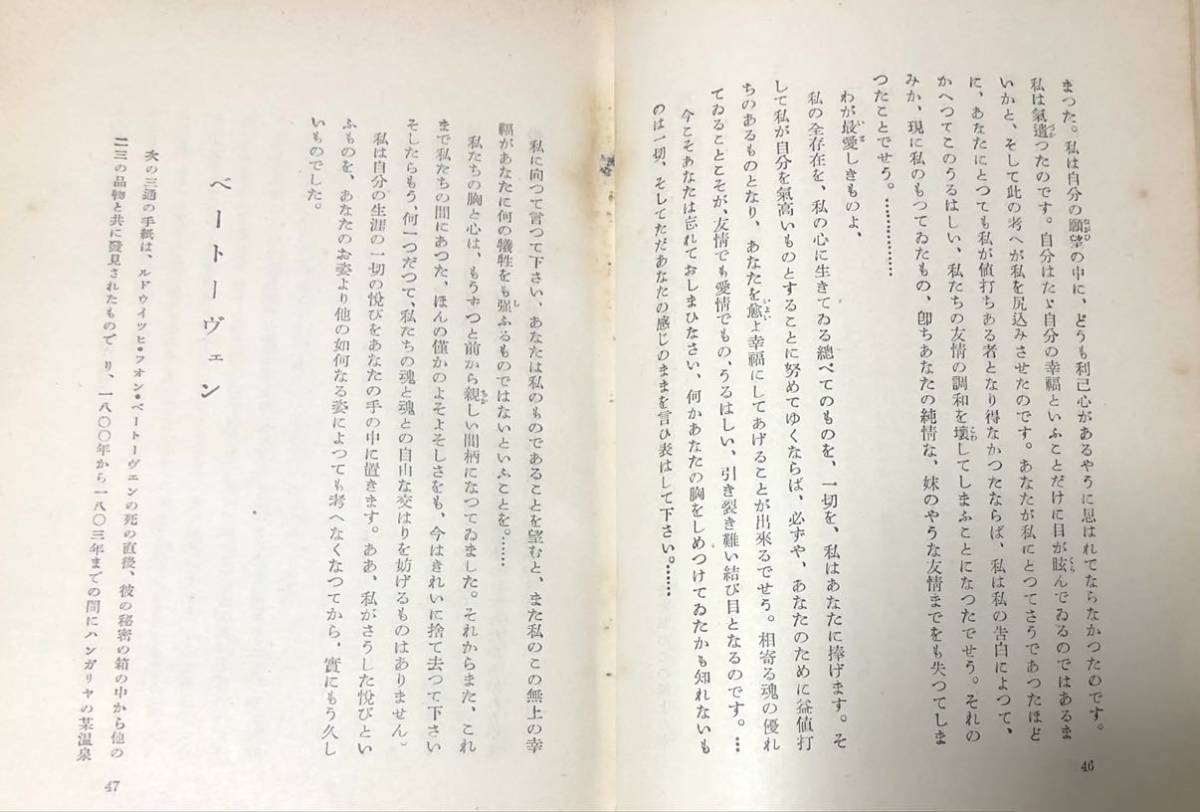 まつた。私は自分の願望の中に、どうも利己心があるやうに思はれてならなかつたのです。
私は氣遣つたのです。自分はたゞ自分の幸福といふことだけに目が眩んでゐるのではあるま
いかと、そして此の考へが私を尻込みさせたのです。あなたが私にとつてさうであつたほど
に、あなたにとつても私が値打ちある者となり得なかつたならば、私は私の告白によつて、
かへつてこのうるはしい、私たちの友情の調和を壞してしまふことになつたでせう。それの
みか、現に私のもつてゐたもの、卽ちあなたの純情な、妹のやうな友情までをも失つてしま
つたことでせう。……………
わが最愛しきものよ、
私の全存在を、私の心に生きてゐる總べてのものを、一切を、私はあなたに捧げます。そ
して私が自分を氣高いものとすることに努めてゆくならば、必ずや、あなたのために益値打
ちのあるものとなり、あなたを愈よ幸福にしてあげることが出來るでせう。相寄る魂の優れ
てゐることこそが、友情でも愛情でもの、うるはしい、引き裂き難い結び目となるのです。…
今こそあなたは忘れておしまひなさい、何かあなたの胸をしめつけてゐたかも知れないも
のは一切、そしてただあなたの感じのままを言ひ表はして下さい。……
46
私に向つて言つて下さい、あなたは私のものであることを望むと、また私のこの無上の幸
福があなたに何の犠牲をも强ふるものではないといふことを。……
私たちの胸と心は、もうずつと前から親しい間柄になつてゐました。それからまた、これ
まで私たちの間にあつた、ほんの僅かのよそよそしさをも、今はきれいに捨て去つて下さい
そしたらもう、何一つだつて、私たちの魂と魂との自由な交はりを妨げるものはありません。
私は自分の生涯の一切の悅びをあなたの手の中に置きます。ああ、私がさうした悅びとい
ふものを、あなたのお姿より他の如何なる姿によつても考へなくなつてから、實にもう久し
いものでした。
ベートーヴェン
次の三通の手紙は、ルドウイツヒ・フオン・ベートーヴェンの死の直後、彼の秘密の箱の中から他の
二三の品物と共に發見されたもので り、一八〇〇年から一八〇三年までの間にハンガリヤの某温泉
47